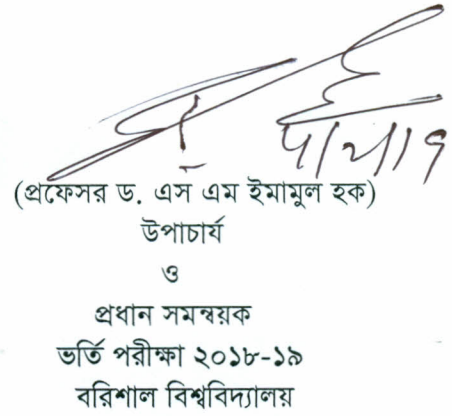 (প্রফেসর ড. এস এম ইমামুল হক)
উপাচার্য
ও
প্রধান সমন্বয়ক
ভর্তি পরীক্ষা ২০১৮-১৯
বরিশাল বিশ্ববিদ্যালয়